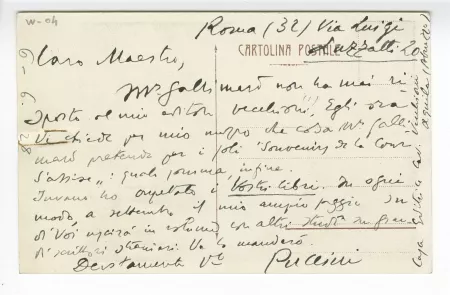 W-04
Roma (32) Via Luigi
Luzzatti 20
CARTOLINA POSTALE
Caro Maestro,
Mr Gallimard non ha mai ri-
sposto al mio editore Vecchioni!! Egli ora
Vi chiede per mio mezzo che cosa Mr Galli-
mard pretenda per i soli "Souvenirs de la Cour
d'assise": quale somma, infine.
Invano ho aspettato i Vostri libri. In ogni
modo, a settembre il mio ampio saggio su
di Voi uscirà in volume con altri studi su
di scrittori stranieri. Ve lo manderò.
Devotamente Vs
Casa Editrice Cav. Vecchioni
Aquila (Abruzzo)